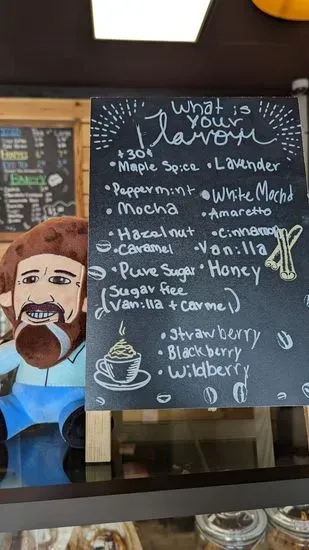 What is
your
flavour
+30¢
•Maple Spice •Lavender
•Peppermint •White Mocha
•Mocha •Amaretto
•Hazelnut •cinnamon
•Caramel •Vanilla
•Pure Sugar •Honey
(Sugar free
Vanilla + Carmel)
•Strawberry
•Blackberry
•Wildberry